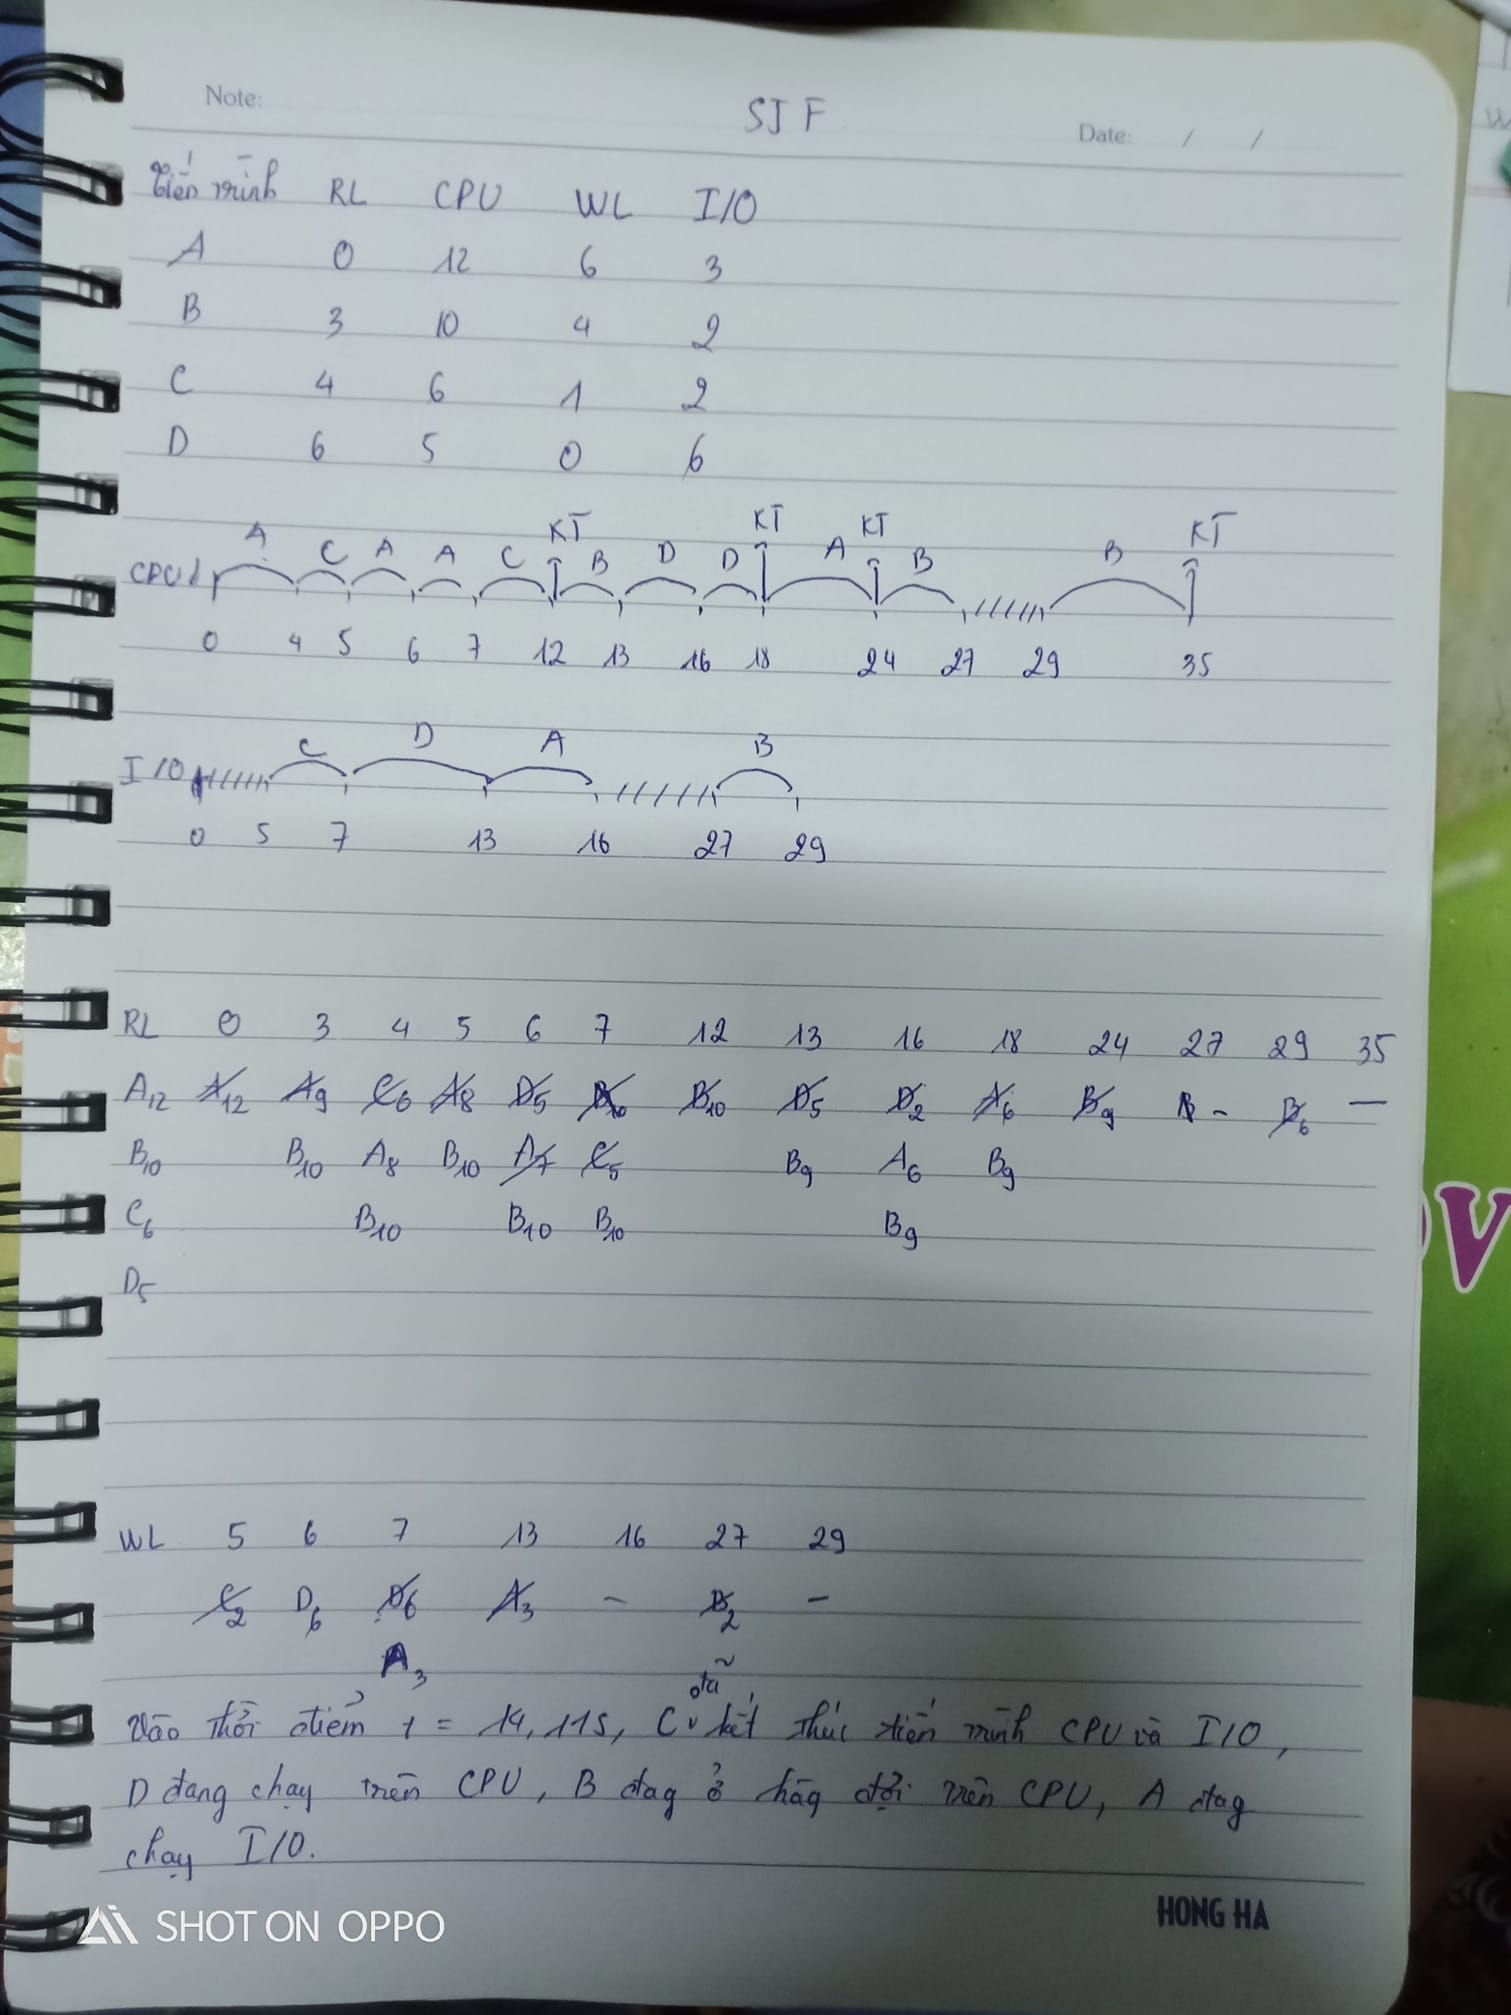 Note:
SJF
Date: / /
Tiến trình RL CPU WL I/O
A 0 12 6 3
B 3 10 4 2
C 4 6 1 2
D 6 5 0 6
KT KT KT KT
A C A A C B D D A B B
CPU
0 4 5 6 7 12 13 16 18 24 27 29 35
C D A B
I/O
0 5 7 13 16 27 29
RL 0 3 4 5 6 7 12 13 16 18 24 27 29 35
A12 A12 A9 C6 A8 D5 B10 D5 D2 A6 B9 - B6 —
B10 B10 A8 B10 A7 C5 B9 A6 B9
C6 B10 B10 B10 B9
D5
WL 5 6 7 13 16 27 29
C2 D6 D6 A3 - B2 -
A3
Vào thời điểm t = 14,115, C đã kết thúc tiến trình CPU và I/O,
D đang chạy trên CPU, B đag ở hàg đợi trên CPU, A đag
chạy I/O.
HONG HA
SHOT ON OPPO
V